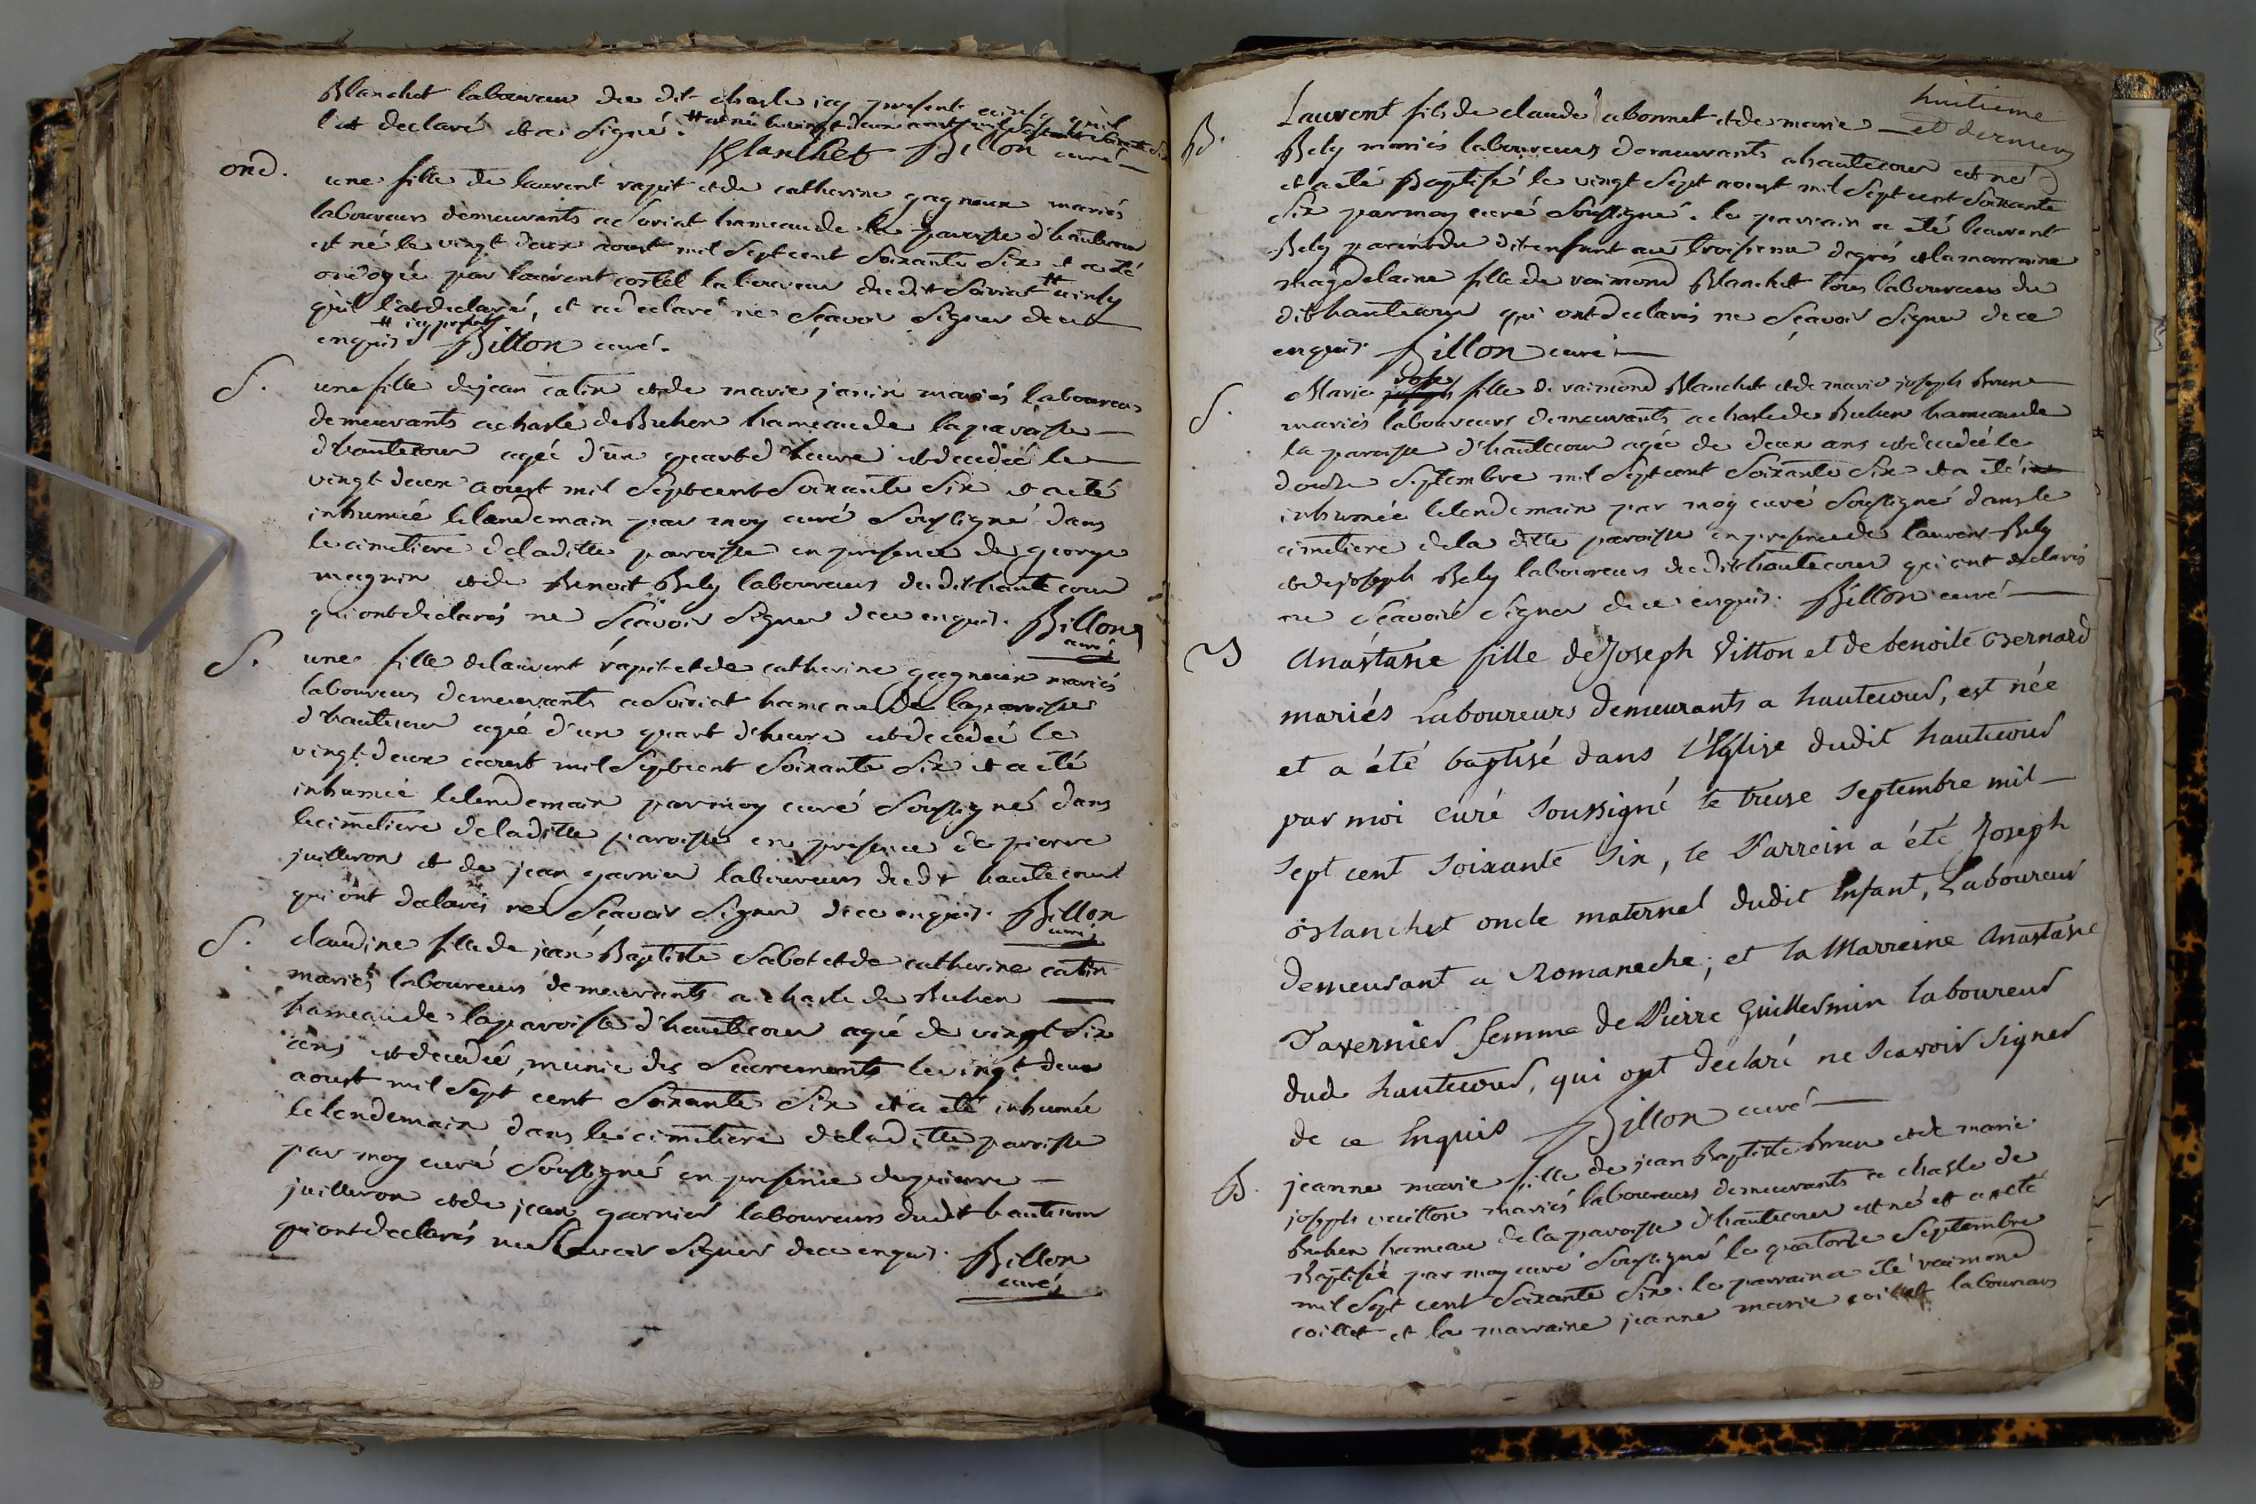 Blanchet laboureur du dit charle icy present ainsy quil
l'at declaré et a signé. # est né le vingt deux aoust mil sept cent soixante six
Blanchet Billon curé
ond. une fille de laurent rapit et de catherine gagneux mariés
laboureurs demeurants a soriat hameau de la paroisse d'hautecour
est né le vingt deux aoust mil sept cent soixante six et a été
ondoyée par laurent costel laboureur du dit soiriat # ainsy
qu'il l'at declaré, et a declaré ne sçavoir signer de ce
# icy present
enquis Billon curé.
S. une fille de jean catin et de marie janin mariés laboureurs
demeurants a charle de Buhen hameau de la paroisse
d'hautecour agée d'un quart d'heure est decedée le
vingt deux aoust mil sept cent soixante six et a été
inhumée le lendemain par moy curé soussigné dans
le cimetiere de la ditte paroisse en presence de george
magnin et de Benoit Bely laboureurs du dit hautecour
qui ont declarés ne sçavoir signer de ce enquis. Billon
curé
S. une fille de laurent rapit et de catherine gagneux mariés
laboureurs demeurants a soiriat hameau de la paroisse
d'hautecour agée d'un quart d'heure est decedée le
vingt deux aoust mil sept cent soixante six et a été
inhumée le lendemain par moy curé soussigné dans
le cimetiere de la ditte paroisse en presence de pierre
juilleron et de jean garnier laboureurs du dit hautecour
qui ont declarés ne sçavoir signer de ce enquis. Billon
curé
S. claudine fille de jean Baptiste sabot et de catherine catin
mariés laboureurs demeurants a charle de Buhen
hameau de la paroisse d'hautecour agée de vingt six
ans est decedée, munie des sacrements le vingt deux
aoust mil sept cent soixante six et a été inhumée
le lendemain dans le cimetiere de la ditte paroisse
par moy curé soussigné en presence de pierre
juilleron et de jean garnier laboureurs du dit hautecour
qui ont declarés ne sçavoir signer de ce enquis. Billon
curé
huitieme
et dernier
B. Laurent fils de claude abonnet et de marie
Bely mariés laboureurs demeurants a hautecour est né
et a été Baptisé le vingt sept aoust mil sept cent soixante
six par moy curé soussigné. le parrain a été laurent
Bely parent du dit enfant au troisieme degrés et la marraine
magdelaine fille de raimond Blanchet tous laboureurs du
dit hautecour qui ont declarés ne sçavoir signer de ce
enquis. Billon curé
S. Marie rose fille de raimond Blanchet et de marie joseph brun
mariés laboureurs demeurants a charle de Buhen hameau de
la paroisse d'hautecour agée de deux ans est decedée le
douze septembre mil sept cent soixante six et a été
inhumée le lendemain par moy curé soussigné dans le
cimetiere de la ditte paroisse en presence de laurent Bely
et de joseph Bely laboureurs du dit hautecour qui ont declarés
ne sçavoir signer de ce enquis. Billon curé
B Anastasie fille de Joseph Vitton et de benoite Bernard
mariés Laboureurs demeurants a hautecour, est née
et a été baptisé dans l'Eglise dudit hautecour
par moi Curé soussigné le treize septembre mil
sept cent soixante six, le Parrein a été Joseph
Blanchet oncle maternel dudit Enfant, Laboureur
demeurant a Romaneche; et la Marreine Anastasie
Tavernier femme de Pierre Guillermin laboureur
dud hautecour, qui ont déclaré ne scavoir signer
de ce Enquis Billon curé
B. jeanne marie fille de jean Baptiste brun et de marie
joseph vuitton mariés laboureurs demeurants a charle de
buhen hameau de la paroisse d'hautecour est né et a été
Baptisée par moy curé soussigné le quatorze septembre
mil sept cent soixante six. le parrain a été raimond
coillet et la marraine jeanne marie coillet laboureurs